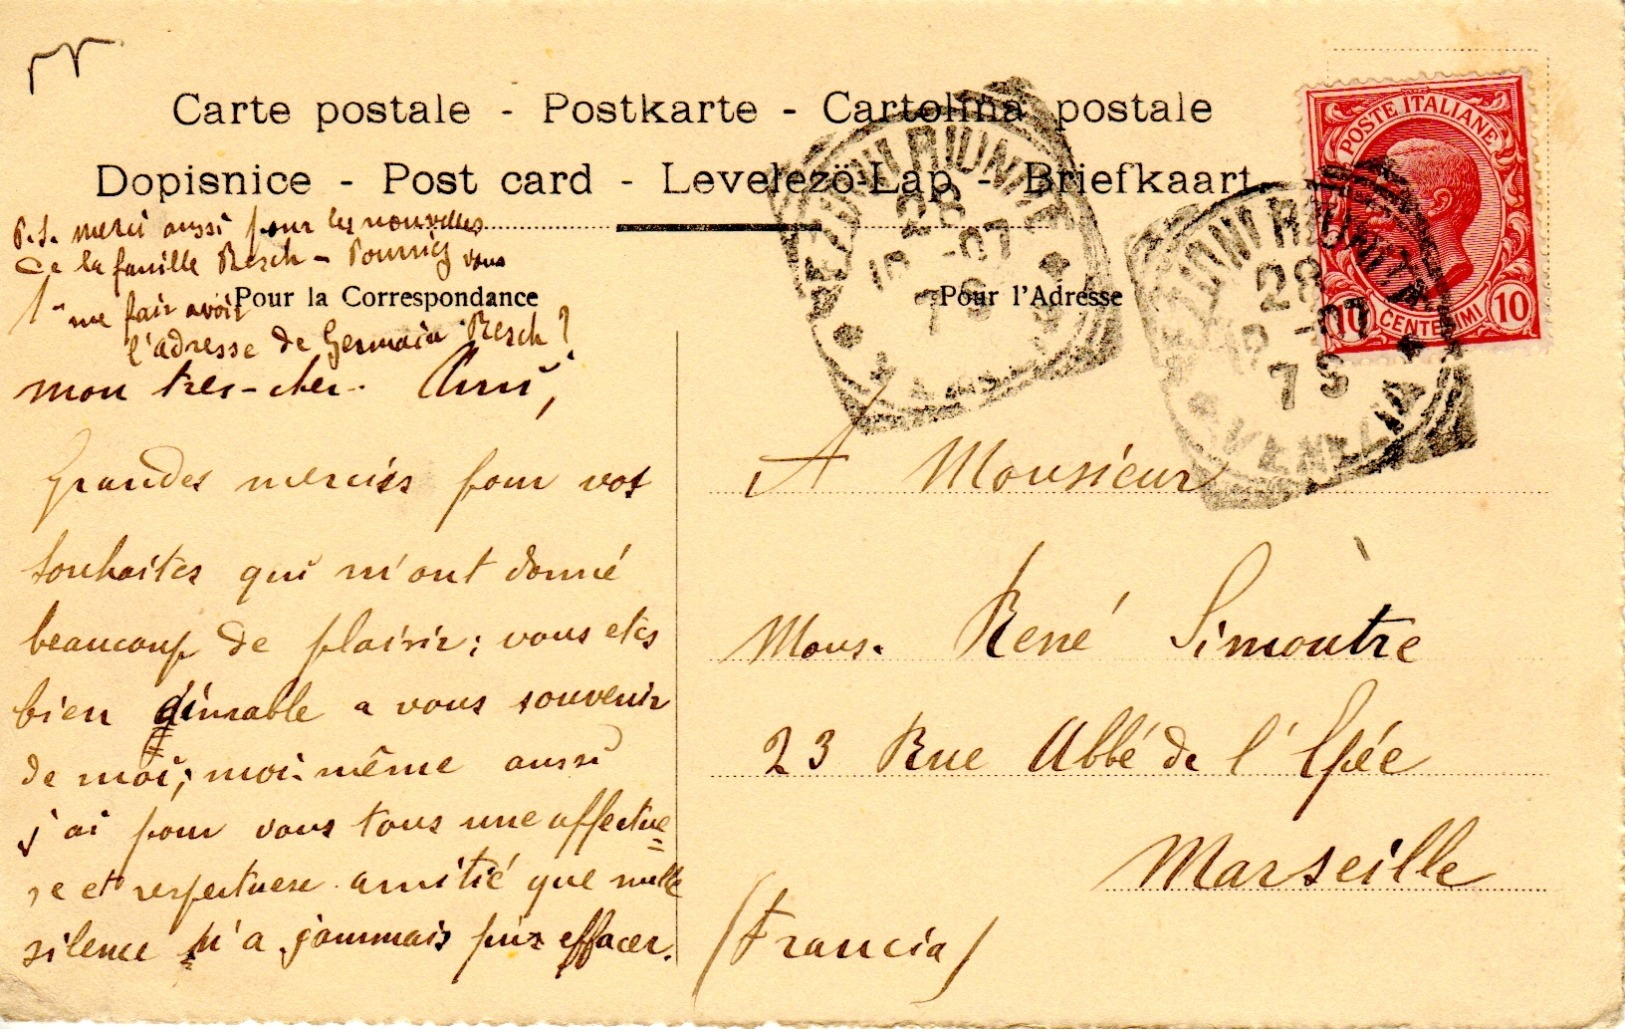 Carte postale - Postkarte - Cartolina postale
Dopisnice - Post card - Levelezö-Lap - Briefkaart
P.S. merci aussi pour les nouvelles
de la famille Resch - Pourriez vous
me fair avoir
l'adresse de Germain Resch?
Pour la Correspondance
mon tres-cher Ami,
Grandes mercies pour vos
souhaites qui m'ont donné
beaucoup de plaisir; vous etes
bien aimable a vous souvenir
de moi; moi-même aussi
j'ai pour vous tous une affectue=
se et respectuese amitié que nulle
silence n'a jammais pu effacer.
Pour l'Adresse
POSTE ITALIANE
10 CENTESIMI 10
28
12 -07
7 S
28
12 -07
7 S
A Monsieur
Mons. René Simoutre
23 Rue Abbé de l'Epée
Marseille
(Francia)